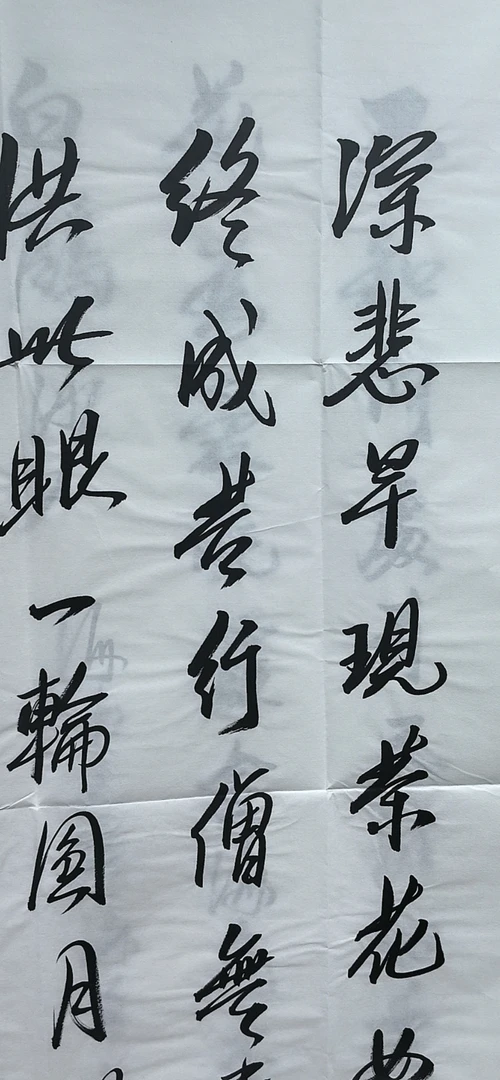 深悲早現茶花女
終成苦行僧無
供世眼一輪圓月